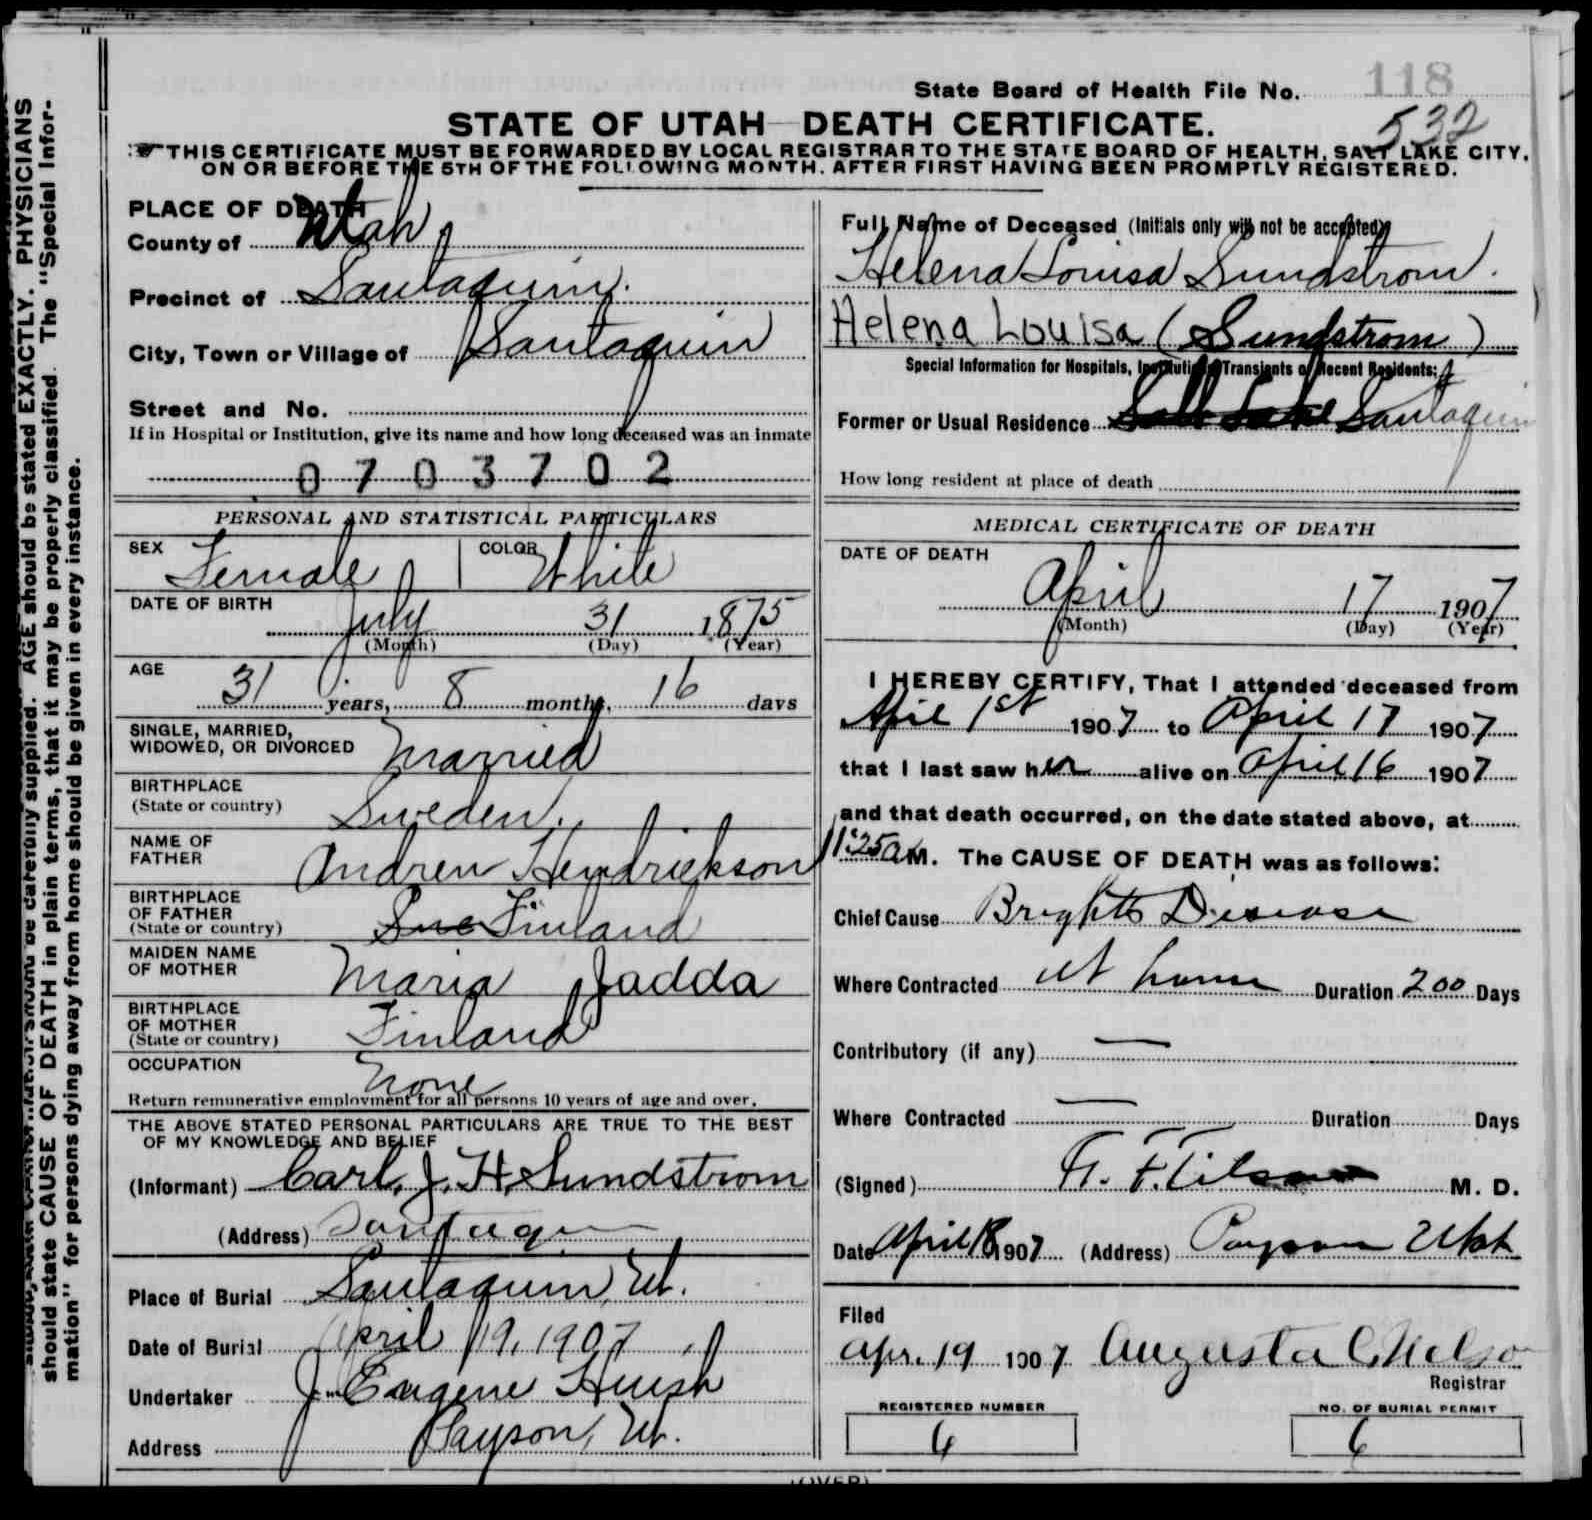 State Board of Health File No. 118
532
STATE OF UTAH—DEATH CERTIFICATE.
THIS CERTIFICATE MUST BE FORWARDED BY LOCAL REGISTRAR TO THE STATE BOARD OF HEALTH, SALT LAKE CITY,
ON OR BEFORE THE 5TH OF THE FOLLOWING MONTH. AFTER FIRST HAVING BEEN PROMPTLY REGISTERED.
be carefully supplied. AGE should be stated EXACTLY. PHYSICIANS
should state CAUSE OF DEATH in plain terms, that it may be properly classified. The "Special Infor-
mation" for persons dying away from home should be given in every instance.
PLACE OF DEATH
County of Utah
Precinct of Santaquin.
City, Town or Village of Santaquin
Street and No.
If in Hospital or Institution, give its name and how long deceased was an inmate
0703702
PERSONAL AND STATISTICAL PARTICULARS
SEX Female COLOR White
DATE OF BIRTH
July 31 1875
(Month) (Day) (Year)
AGE
31 years, 8 months, 16 days
SINGLE, MARRIED,
WIDOWED, OR DIVORCED Married
BIRTHPLACE
(State or country) Sweden.
NAME OF
FATHER Andrew Hendrickson
BIRTHPLACE
OF FATHER
(State or country) Swe Finland
MAIDEN NAME
OF MOTHER Maria Jadda
BIRTHPLACE
OF MOTHER
(State or country) Finland
OCCUPATION None
Return remunerative employment for all persons 10 years of age and over.
THE ABOVE STATED PERSONAL PARTICULARS ARE TRUE TO THE BEST
OF MY KNOWLEDGE AND BELIEF
(Informant) Carl. J. H. Sundstrom
(Address) Santaquin
Place of Burial Santaquin, Ut.
Date of Burial April 19, 1907
Undertaker J. Eugene Huish
Address Payson, Ut.
Full Name of Deceased (Initials only will not be accepted)
Helena Louisa Sundstrom.
Helena Louisa (Sundstrom)
Special Information for Hospitals, Institutions, Transients or Recent Residents:
Former or Usual Residence Salt Lake Santaquin
How long resident at place of death
MEDICAL CERTIFICATE OF DEATH
DATE OF DEATH
April 17 1907
(Month) (Day) (Year)
I HEREBY CERTIFY, That I attended deceased from
April 1st 1907 to April 17 1907
that I last saw her alive on April 16 1907
and that death occurred, on the date stated above, at
11:25 a M. The CAUSE OF DEATH was as follows:
Chief Cause Brights Disease
Where Contracted at home Duration 200 Days
Contributory (if any) —
Where Contracted — Duration Days
(Signed) F. Tilson M. D.
Date April 18 1907 (Address) Payson Utah
Filed
Apr. 19 1907 Augusta C Nelson
Registrar
REGISTERED NUMBER
6
NO. OF BURIAL PERMIT
6
(OVER)